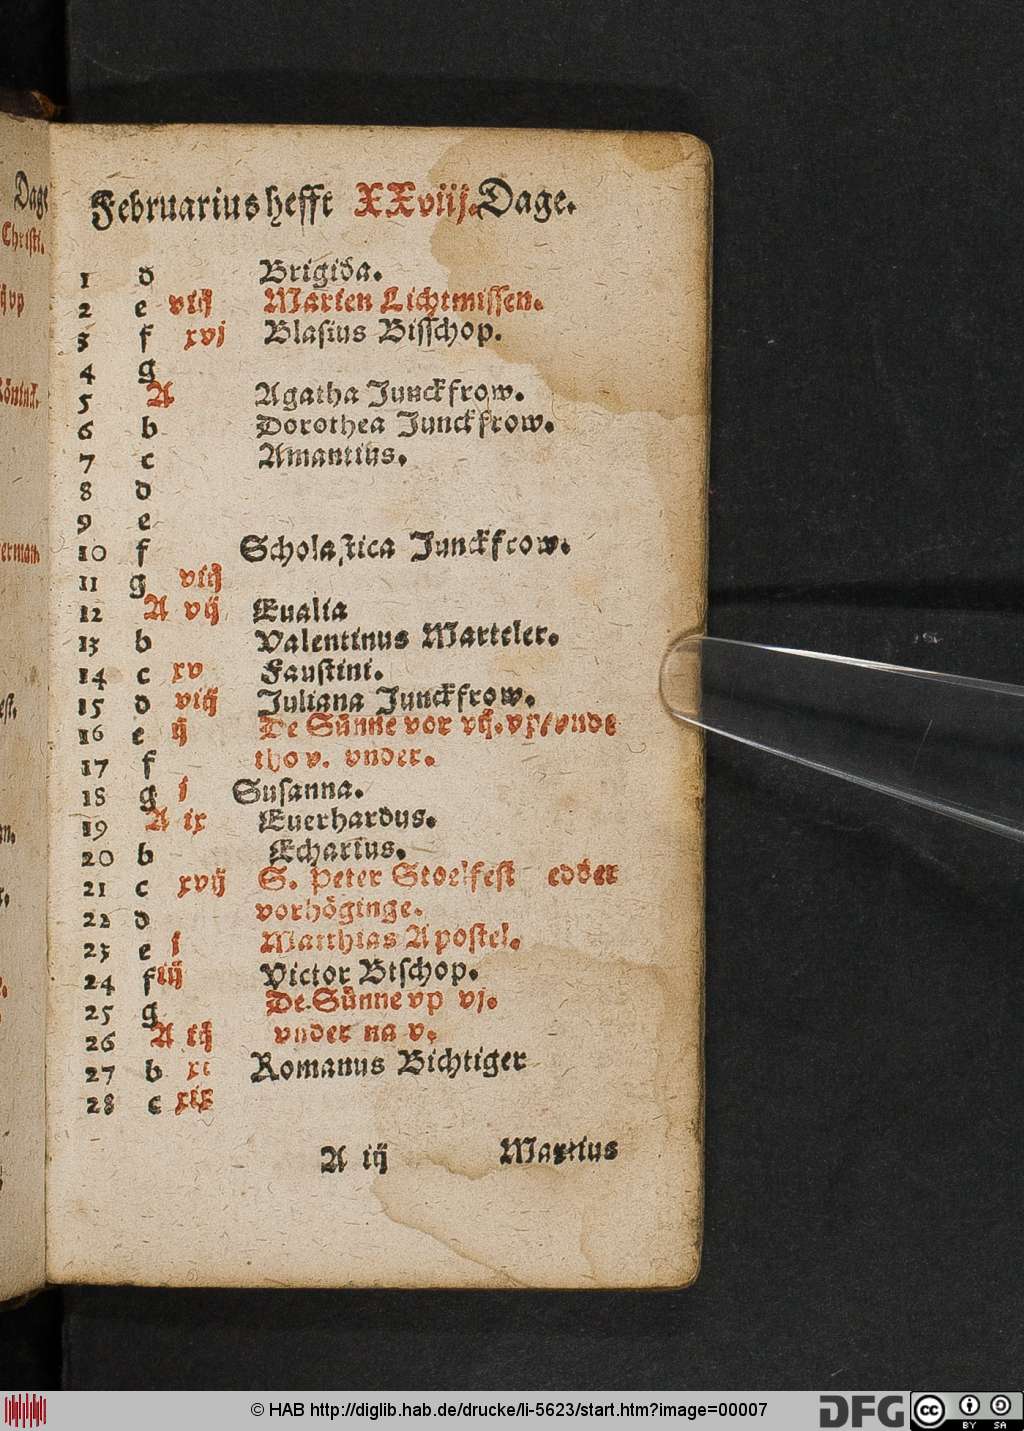 Februarius hefft XXviij. Dage.
1 d Brigida.
2 e viij Marien Lichtmissen.
3 f xvj Blasius Bisschop.
4 g
5 A Agatha Junckfrow.
6 b Dorothea Junckfrow.
7 c Amantius.
8 d
9 e
10 f Scholastica Junckfrow.
11 g viij
12 A vij Eualia
13 b Valentinus Marteler.
14 c xv Faustini.
15 d viij Juliana Junckfrow.
16 e ij De Sünne vor vij. vp/ vnde
17 f tho v. vnder.
18 g j Susanna.
19 A ix Euerhardus.
20 b Echarius.
21 c xvij S. Peter Stoelfest edder
22 d vorhöginge.
23 e j Matthias Apostel.
24 f iij Victor Bischop.
25 g De Sünne vp vj.
26 A iij vnder na v.
27 b xi Romanus Bichtiger
28 c xix
A iij Martius
Dage
Christi.
vp
Köninck.
© HAB http://diglib.hab.de/drucke/li-5623/start.htm?image=00007
DFG
cc
BY SA